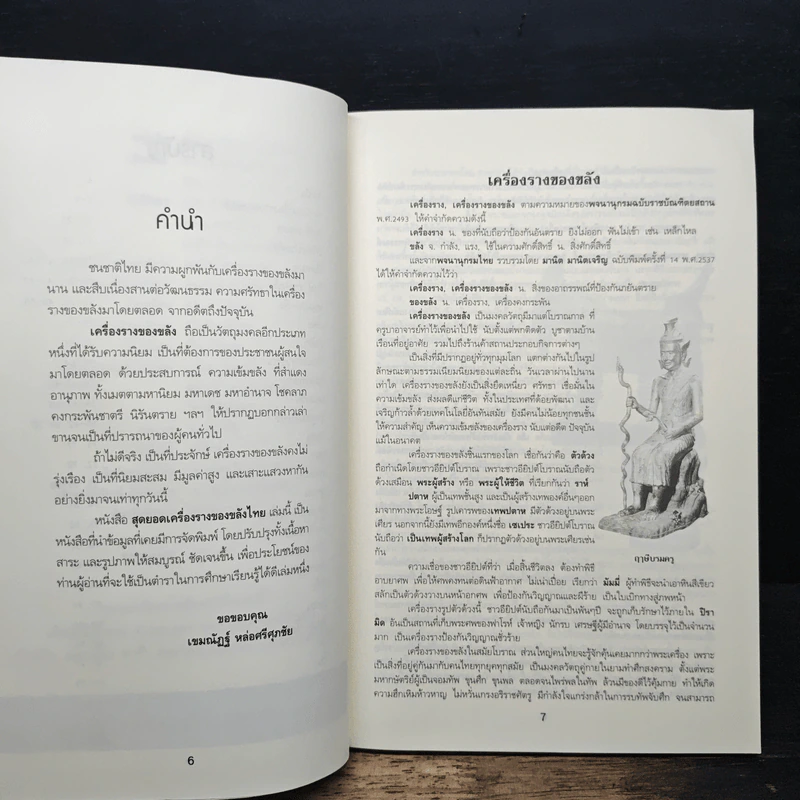 คำนำ
ชนชาติไทย มีความผูกพันกับเครื่องรางของขลังมา
นาน และสืบเนื่องสานต่อวัฒนธรรม ความศรัทธาในเครื่อง
รางของขลังมาโดยตลอด จากอดีตถึงปัจจุบัน
เครื่องรางของขลัง ถือเป็นวัตถุมงคลอีกประเภท
หนึ่งที่ได้รับความนิยม เป็นที่ต้องการของประชาชนผู้สนใจ
มาโดยตลอด ด้วยประสบการณ์ ความเข้มขลัง ที่สำแดง
อานุภาพ ทั้งเมตตามหานิยม มหาเดช มหาอำนาจ โชคลาภ
คงกระพันชาตรี นิรันตราย ฯลฯ ให้ปรากฏบอกกล่าวเล่า
ขานจนเป็นที่ปรารถนาของผู้คนทั่วไป
ถ้าไม่ดีจริง เป็นที่ประจักษ์ เครื่องรางของขลังคงไม่
รุ่งเรือง เป็นที่นิยมสะสม มีมูลค่าสูง และเสาะแสวงหากัน
อย่างยิ่งมาจนเท่าทุกวันนี้
หนังสือ สุดยอดเครื่องรางของขลังไทย เล่มนี้ เป็น
หนังสือที่นำข้อมูลที่เคยมีการจัดพิมพ์ โดยปรับปรุงทั้งเนื้อหา
สาระ และรูปภาพให้สมบูรณ์ ชัดเจนขึ้น เพื่อประโยชน์ของ
ท่านผู้อ่านที่จะใช้เป็นตำราในการศึกษาเรียนรู้ได้ดีเล่มหนึ่ง
ขอขอบคุณ
เขมณัฏฐ์ หล่อศรีศุภชัย
6
เครื่องรางของขลัง
เครื่องราง, เครื่องรางของขลัง ตามความหมายของพจนานุกรมฉบับราชบัณฑิตยสถาน
พ.ศ.2493 ให้คำจำกัดความดังนี้
เครื่องราง น. ของที่นับถือว่าป้องกันอันตราย ยิงไม่ออก ฟันไม่เข้า เช่น เหล็กไหล
ขลัง ว. กำลัง, แรง, ใช้ในความศักดิ์สิทธิ์ น. สิ่งศักดิ์สิทธิ์
และจากพจนานุกรมไทย รวบรวมโดย มานิต มานิตเจริญ ฉบับพิมพ์ครั้งที่ 14 พ.ศ.2537
ได้ให้คำจำกัดความไว้ว่า
เครื่องราง, เครื่องรางของขลัง น. สิ่งของอาถรรพณ์ที่ป้องกันภยันตราย
ของขลัง น. เครื่องราง, เครื่องคงกระพัน
เครื่องรางของขลัง เป็นมงคลวัตถุมีมาแต่โบราณกาล ที่
ครูบาอาจารย์ทำไว้เพื่อนำไปใช้ นับตั้งแต่พกติดตัว บูชาตามบ้าน
เรือนที่อยู่อาศัย รวมไปถึงร้านค้าสถานประกอบกิจการต่างๆ
เป็นสิ่งที่มีปรากฏอยู่ทั่วทุกมุมโลก แตกต่างกันไปในรูป
ลักษณะตามธรรมเนียมนิยมของแต่ละถิ่น วันเวลาผ่านไปนาน
เท่าใด เครื่องรางของขลังยังเป็นสิ่งยึดเหนี่ยว ศรัทธา เชื่อมั่นใน
ความเข้มขลัง ส่งผลดีแก่ชีวิต ทั้งในประเทศที่ด้อยพัฒนา และ
เจริญก้าวล้ำด้วยเทคโนโลยีอันทันสมัย ยังมีคนไม่น้อยทุกชนชั้น
ให้ความสำคัญ เห็นความเข้มขลังของเครื่องราง นับแต่อดีต ปัจจุบัน
แม้ในอนาคต
เครื่องรางของขลังชิ้นแรกของโลก เชื่อกันว่าคือ ตัวด้วง
ถือกำเนิดโดยชาวอียิปต์โบราณ เพราะชาวอียิปต์โบราณนับถือตัว
ด้วงเสมือน พระผู้สร้าง หรือ พระผู้ให้ชีวิต ที่เรียกกันว่า ราห์
ปตาห เป็นเทพชั้นสูง และเป็นผู้สร้างเทพองค์อื่นๆออก
มาจากทางพระโอษฐ์ รูปเคารพของเทพปตาห มีตัวด้วงอยู่บนพระ
เศียร นอกจากนี้ยังมีเทพอีกองค์หนึ่งชื่อ เซเประ ชาวอียิปต์โบราณ
นับถือว่า เป็นเทพผู้สร้างโลก ก็ปรากฏตัวด้วงอยู่บนพระเศียรเช่น
กัน
ฤาษีบรมครู
ความเชื่อของชาวอียิปต์ที่ว่า เมื่อสิ้นชีวิตลง ต้องทำพิธี
อาบยาศพ เพื่อให้ศพคงทนต่อดินฟ้าอากาศ ไม่เน่าเปื่อย เรียกว่า มัมมี่ ผู้ทำพิธีจะนำเอาหินสีเขียว
สลักเป็นตัวด้วงวางบนหน้าอกศพ เพื่อป้องกันวิญญาณและผีร้าย เป็นใบเบิกทางสู่ภพหน้า
เครื่องรางรูปตัวด้วงนี้ ชาวอียิปต์นับถือกันมาเป็นพันๆปี จะถูกเก็บรักษาไว้ภายใน ปิรา
มิด อันเป็นสถานที่เก็บพระศพของฟาโรห์ เจ้าหญิง นักรบ เศรษฐีผู้มีอำนาจ โดยบรรจุไว้เป็นจำนวน
มาก เป็นเครื่องป้องกันวิญญาณชั่วร้าย
เครื่องรางของขลังในสมัยโบราณ ส่วนใหญ่คนไทยจะรู้จักคุ้นเคยมากกว่าพระเครื่อง เพราะ
เป็นสิ่งที่อยู่คู่กันมากับคนไทยทุกยุคทุกสมัย เป็นมงคลวัตถุคู่กายในยามทำศึกสงคราม ตั้งแต่พระ
มหากษัตริย์ผู้เป็นจอมทัพ ขุนศึก ขุนพล ตลอดจนไพร่พลในทัพ ล้วนมีของดีไว้คุ้มกาย ทำให้เกิด
ความฮึกเหิมห้าวหาญ ไม่หวั่นเกรงอริราชศัตรู มีกำลังใจแกร่งกล้าในการรบทัพจับศึก จนสามารถ
7